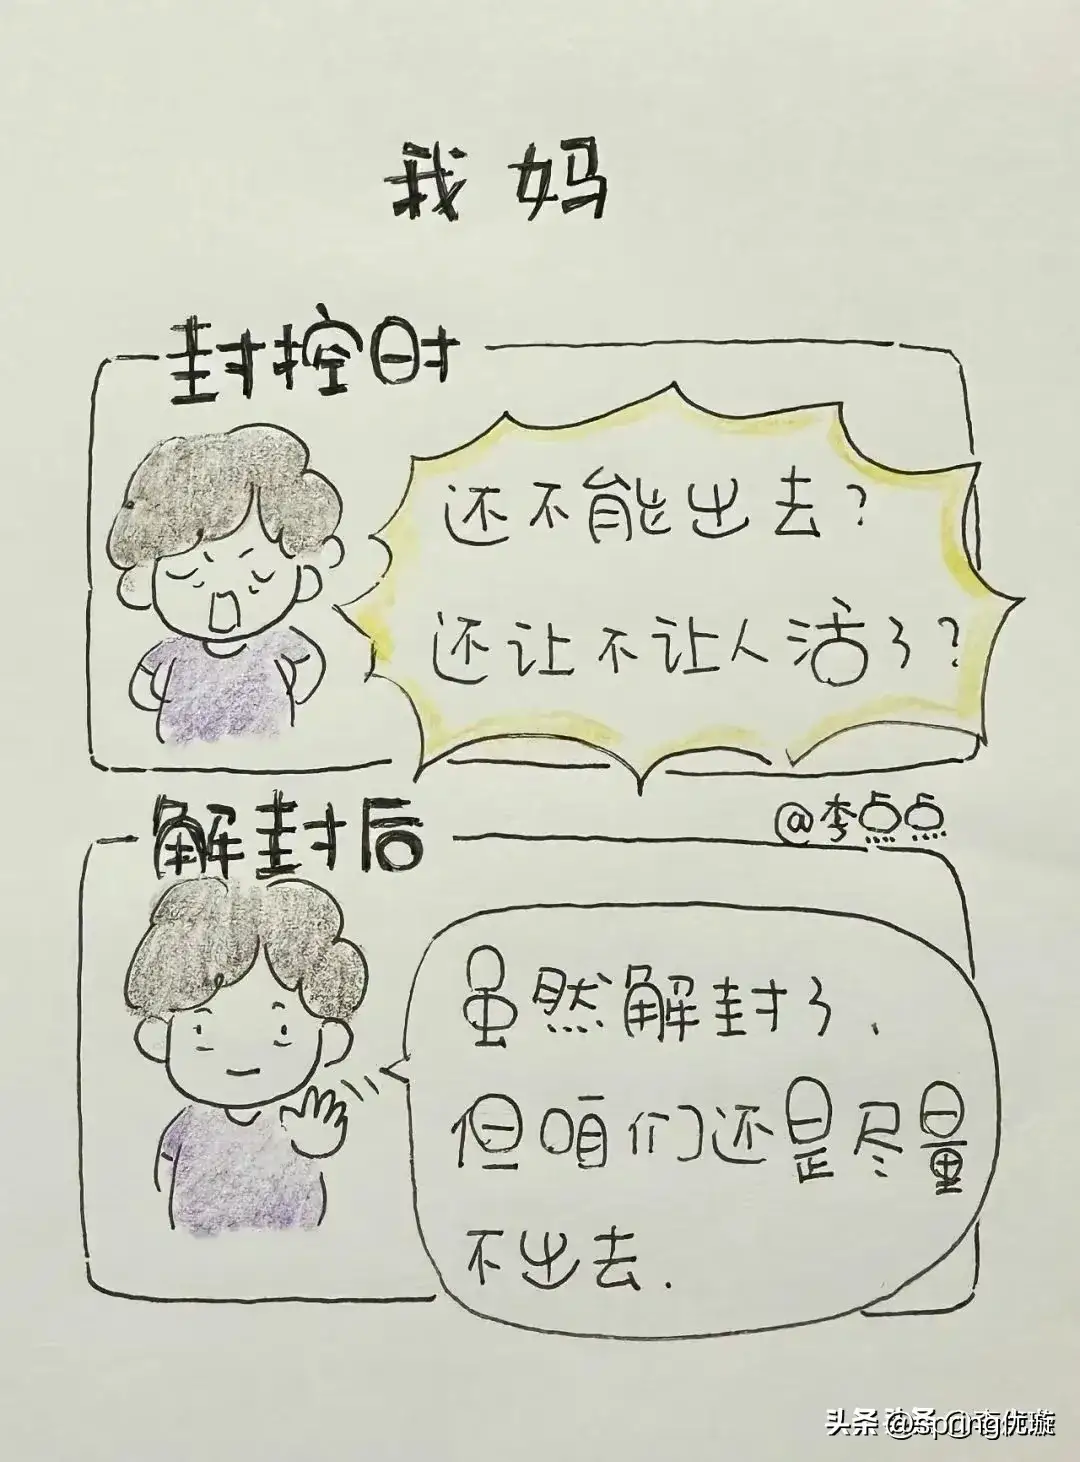 我妈
封控时
还不能出去?
还让不让人活了?
@李点点
解封后
虽然解封了,
但咱们还是尽量
不出去.
头条 @spring优璇